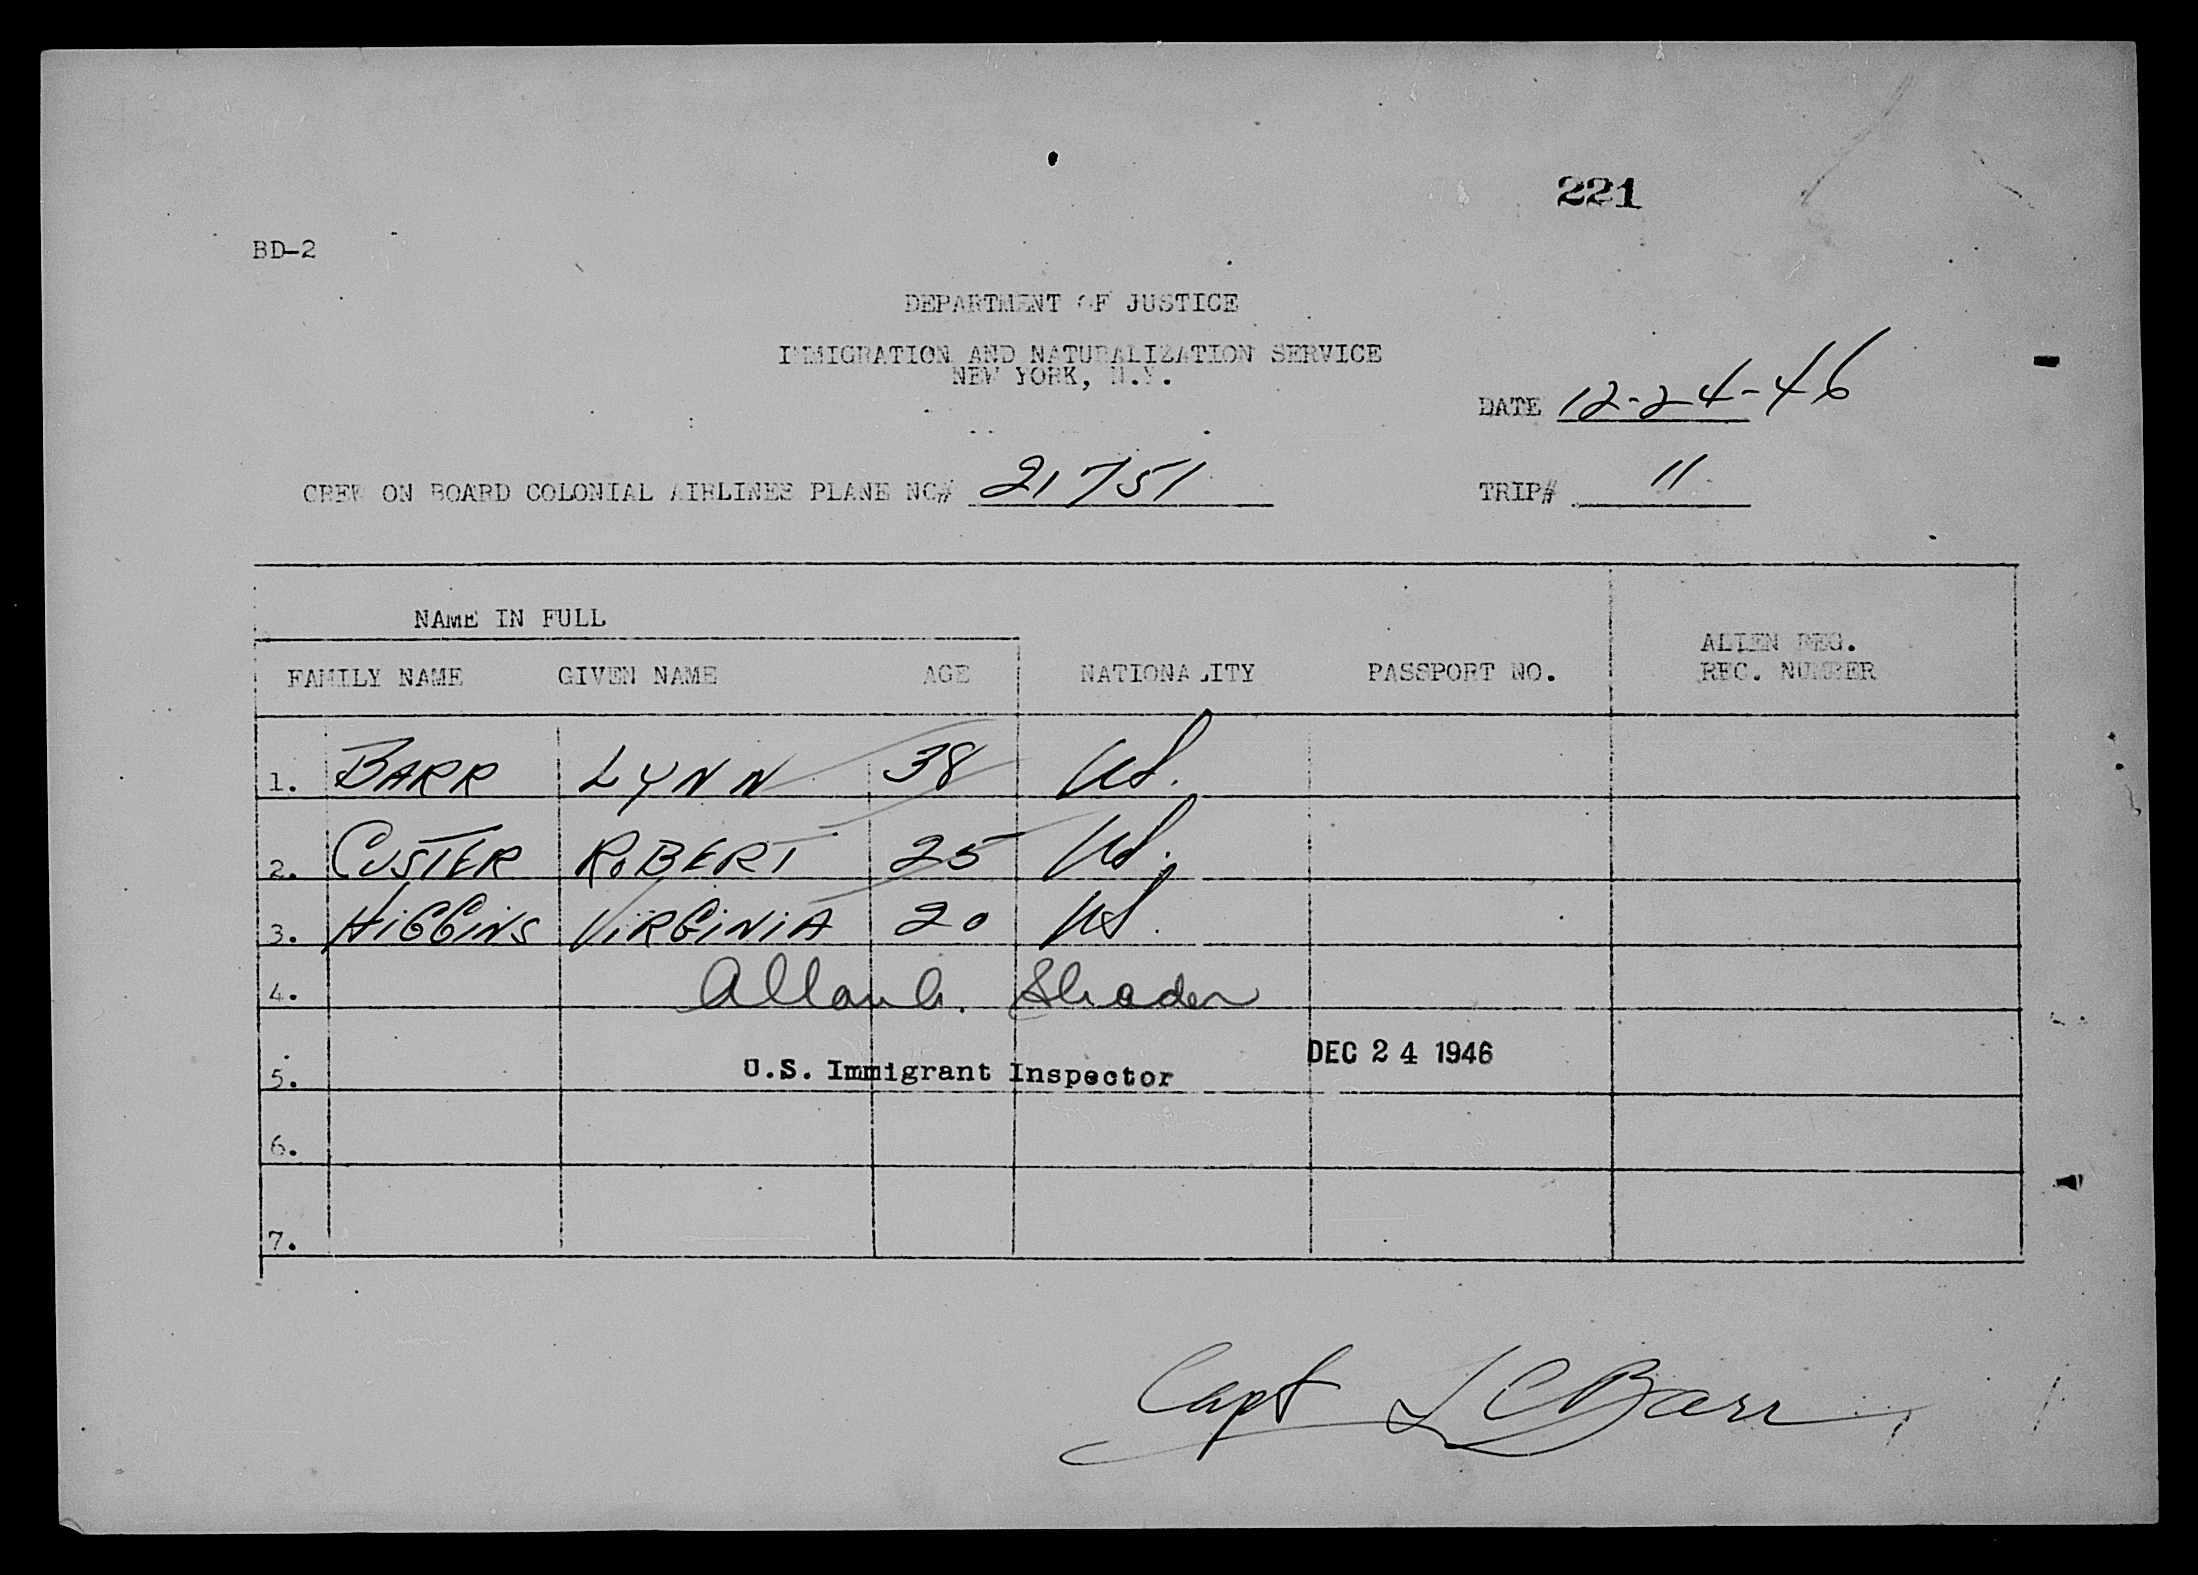 221
BD-2
DEPARTMENT OF JUSTICE
IMMIGRATION AND NATURALIZATION SERVICE
NEW YORK, N.Y.
DATE 12-24-46
CREW ON BOARD COLONIAL AIRLINES PLANE NC# 21751 TRIP# 11
NAME IN FULL
ALIEN REG.
FAMILY NAME GIVEN NAME AGE NATIONALITY PASSPORT NO. REC. NUMBER
1. BARR LYNN 38 US.
2. CUSTER ROBERT 25 US.
3. HIGGINS VIRGINIA 20 US.
4. Shader
DEC 24 1946
5. U.S. Immigrant Inspector
6.
7.
Capt L C Barr